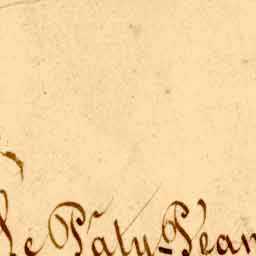 Le Paty Péan